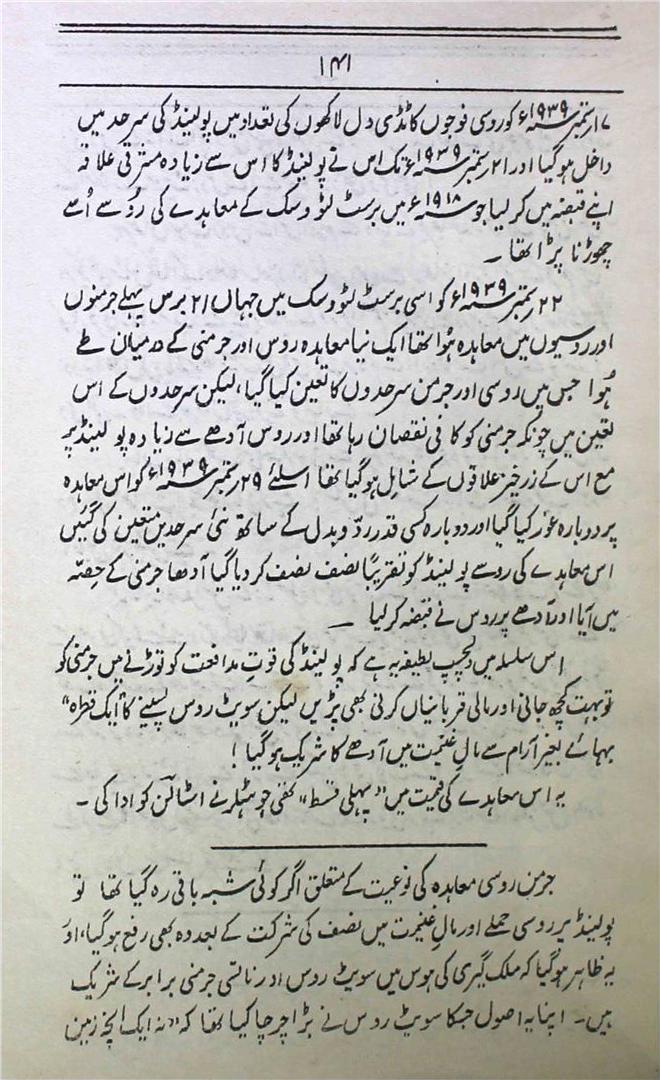 ۱۴۱
۱۷ ستمبر ۱۹۳۹ء کو روسی فوجوں کا ٹڈی دل لاکھوں کی تعداد میں پولینڈ کی سرحد میں
داخل ہوگیا اور ۲۱ ستمبر ۱۹۳۹ء تک اس نے پولینڈ کا اس سے زیادہ مشرقی علاقہ
اپنے قبضہ میں کرلیا جو ۱۹۱۸ء میں برسٹ لٹووسک کے معاہدے کی رُو سے اُسے
چھوڑنا پڑا تھا۔
۲۲ ستمبر ۱۹۳۹ء کو اسی برسٹ لٹووسک میں جہاں ۲۱ برس پہلے جرمنوں
اور روسیوں میں معاہدہ ہُوا تھا ایک نیا معاہدہ روس اور جرمنی کے درمیان طے
ہُوا جس میں روسی اور جرمن سرحدوں کا تعین کیا گیا، لیکن سرحدوں کے اس
تعین میں چونکہ جرمنی کو کافی نقصان رہا تھا اور روس آدھے سے زیادہ پولینڈ پر
مع اس کے زرخیز علاقوں کے شامل ہوگیا تھا اسلئے ۲۹ ستمبر ۱۹۳۹ء کو اس معاہدہ
پر دوبارہ غور کیا گیا اور دوبارہ کسی قدر ردّ و بدل کے ساتھ نئی سرحدیں متعین کی گئیں
اس معاہدے کی رو سے پولینڈ کو تقریباً نصف نصف کردیا گیا آدھا جرمنی کے حصّہ
میں آیا اور آدھے پر روس نے قبضہ کرلیا ۔
اس سلسلہ میں دلچسپ لطیفہ یہ ہے کہ پولینڈ کی قوتِ مدافعت کو توڑنے میں جرمنی کو
تو بہت کچھ جانی اور مالی قربانیاں کرنی بھی پڑیں لیکن سویٹ روس پسینے کا ”ایک قطرہ“
بہائے بغیر آرام سے مالِ غنیمت میں آدھے کا شریک ہوگیا !
یہ اس معاہدے کی قیمت میں ”پہلی قسط“ تھی جو ہٹلر نے اسٹالن کو ادا کی ۔
جرمن روسی معاہدہ کی نوعیت کے متعلق اگر کوئی شبہ باقی رہ گیا تھا تو
پولینڈ پر روسی حملے اور مالِ غنیمت میں نصف کی شرکت کے بعد وہ بھی رفع ہوگیا، اور
یہ ظاہر ہوگیا کہ ملک گیری کی ہوس میں سویٹ روس اور ناتسی جرمنی برابر کے شریک
ہیں۔ اپنا یہ اصول جسکا سویٹ روس نے بڑا چرچا کیا تھا کہ ”نہ ایک انچ زمین